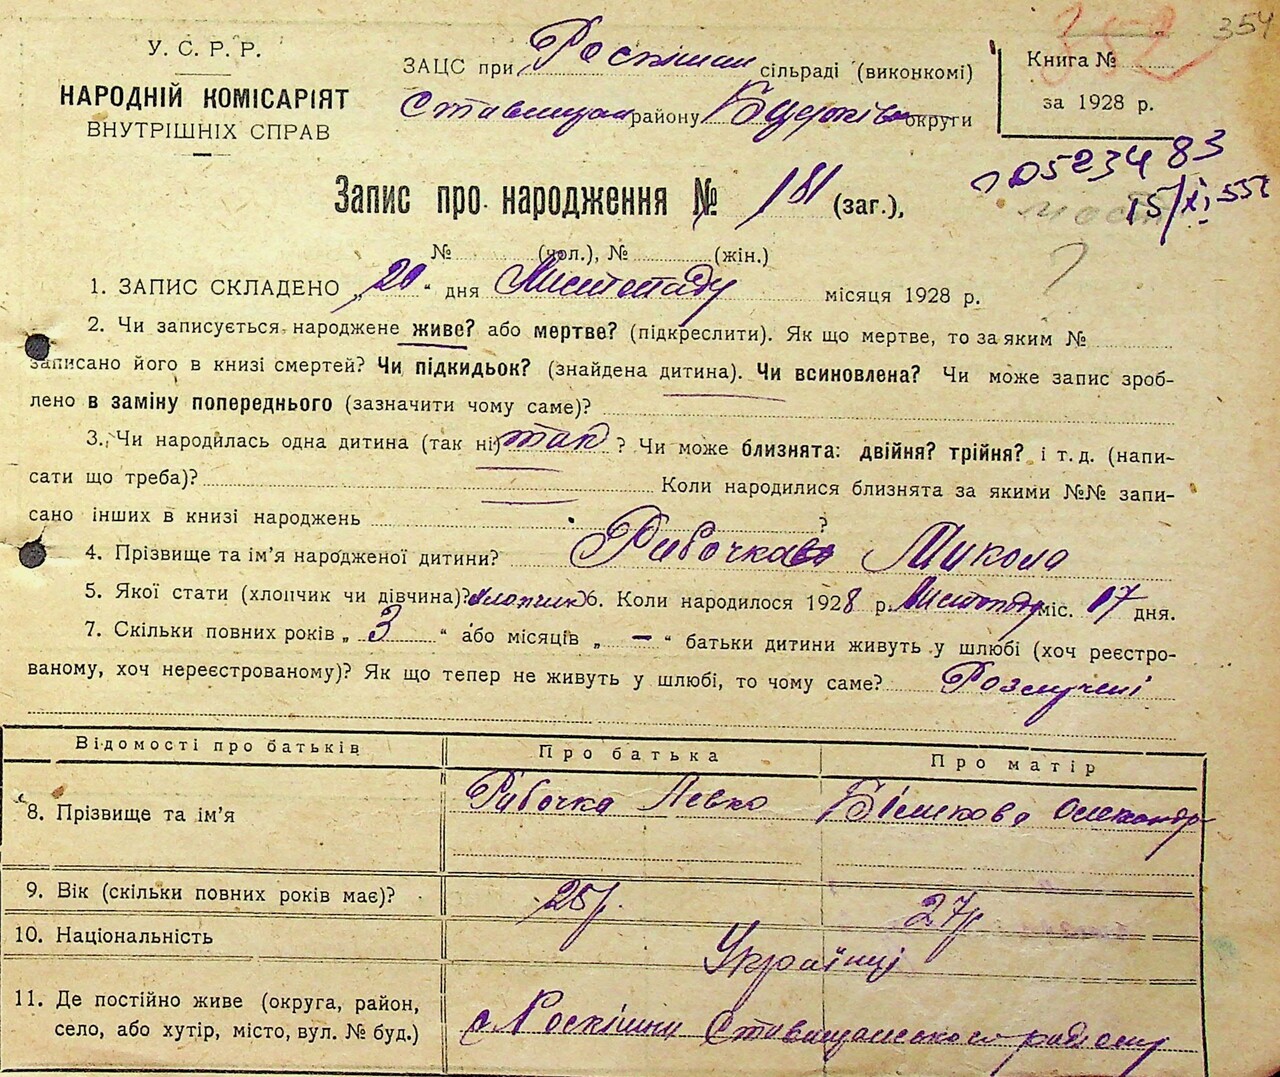 354
352
У. С. Р. Р.
НАРОДНІЙ КОМІСАРІЯТ
ВНУТРІШНІХ СПРАВ
ЗАЦС при Роскішан сільраді (виконкомі)
Ставищан району Бцерків округи
Книга №
за 1928 р.
Запис про народження № 181 (заг.),
№ (чол.), № (жін.)
1. ЗАПИС СКЛАДЕНО „20“ дня Листопаду місяця 1928 р.
2. Чи записується народжене живе? або мертве? (підкреслити). Як що мертве, то за яким №
записано його в книзі смертей? Чи підкидьок? (знайдена дитина). Чи всиновлена? Чи може запис зроб-
лено в заміну попереднього (зазначити чому саме)?
3. Чи народилась одна дитина (так ні) так? Чи може близнята: двійня? трійня? і т. д. (напи-
сати що треба)? Коли народилися близнята за якими №№ запи-
сано інших в книзі народжень ?
4. Прізвище та ім’я народженої дитини? Рибочка Микола
5. Якої стати (хлопчик чи дівчина)? Хлопчик 6. Коли народилося 1928 р. Листопаду міс. 17 дня.
7. Скільки повних років „ 3 “ або місяців „ – “ батьки дитини живуть у шлюбі (хоч реєстро-
ваному, хоч нереєстрованому)? Як що тепер не живуть у шлюбі, то чому саме? Розлучені
Відомості про батьків Про батька Про матір
8. Прізвище та ім’я Рибочка Левко Біликова Олександр
9. Вік (скільки повних років має)? 25р. 27р
10. Національність Українці
11. Де постійно живе (округа, район,
село, або хутір, місто, вул. № буд.) с Роскішни Ставищанського району